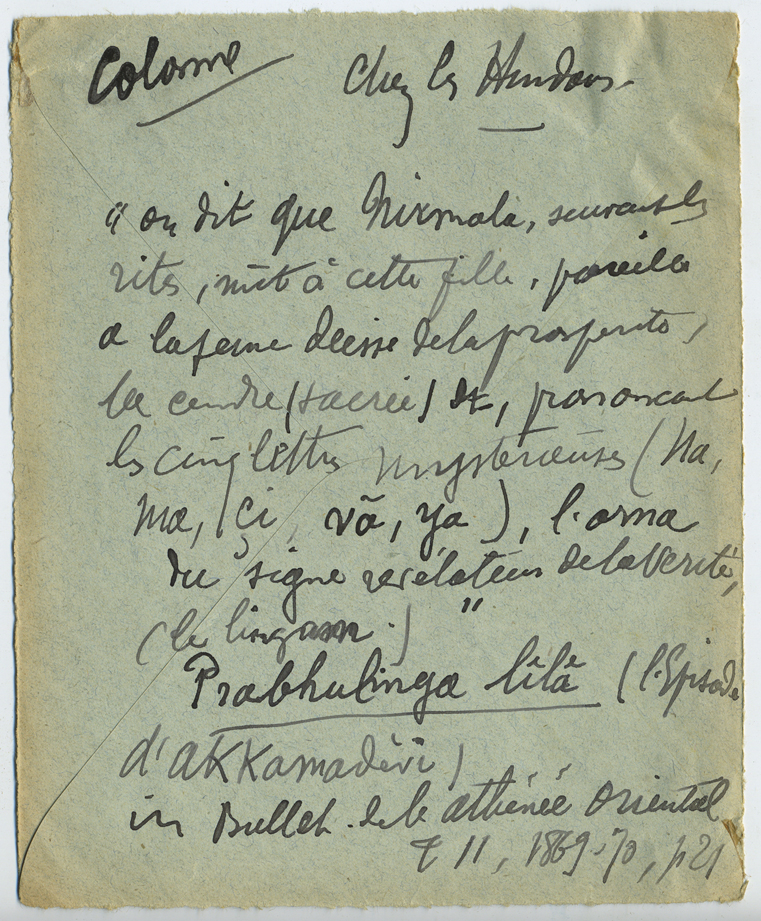 Colonne chez les Hindous
" on dit que Nirmala, suivant les
rites, mit à cette fille, pareille
a la ferme déesse de la prosperité,
la cendre (sacrée) et, prononcant
les cinq lettres mysterieuses (Na,
ma, çi, vā, ya), l'orna
du signe révélateur de la Verité,
(le lingam.) "
Prabhulinga lîlâ (l'Episode
d'akkamadêvi)
in Bullet. de l' athénée oriental
t II, 1869-70, p 21